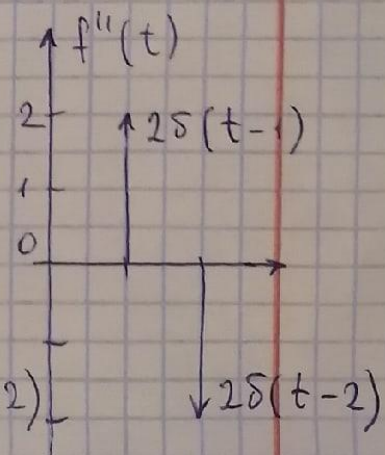 f''(t)
2
2δ(t-1)
1
0
2)
2δ(t-2)